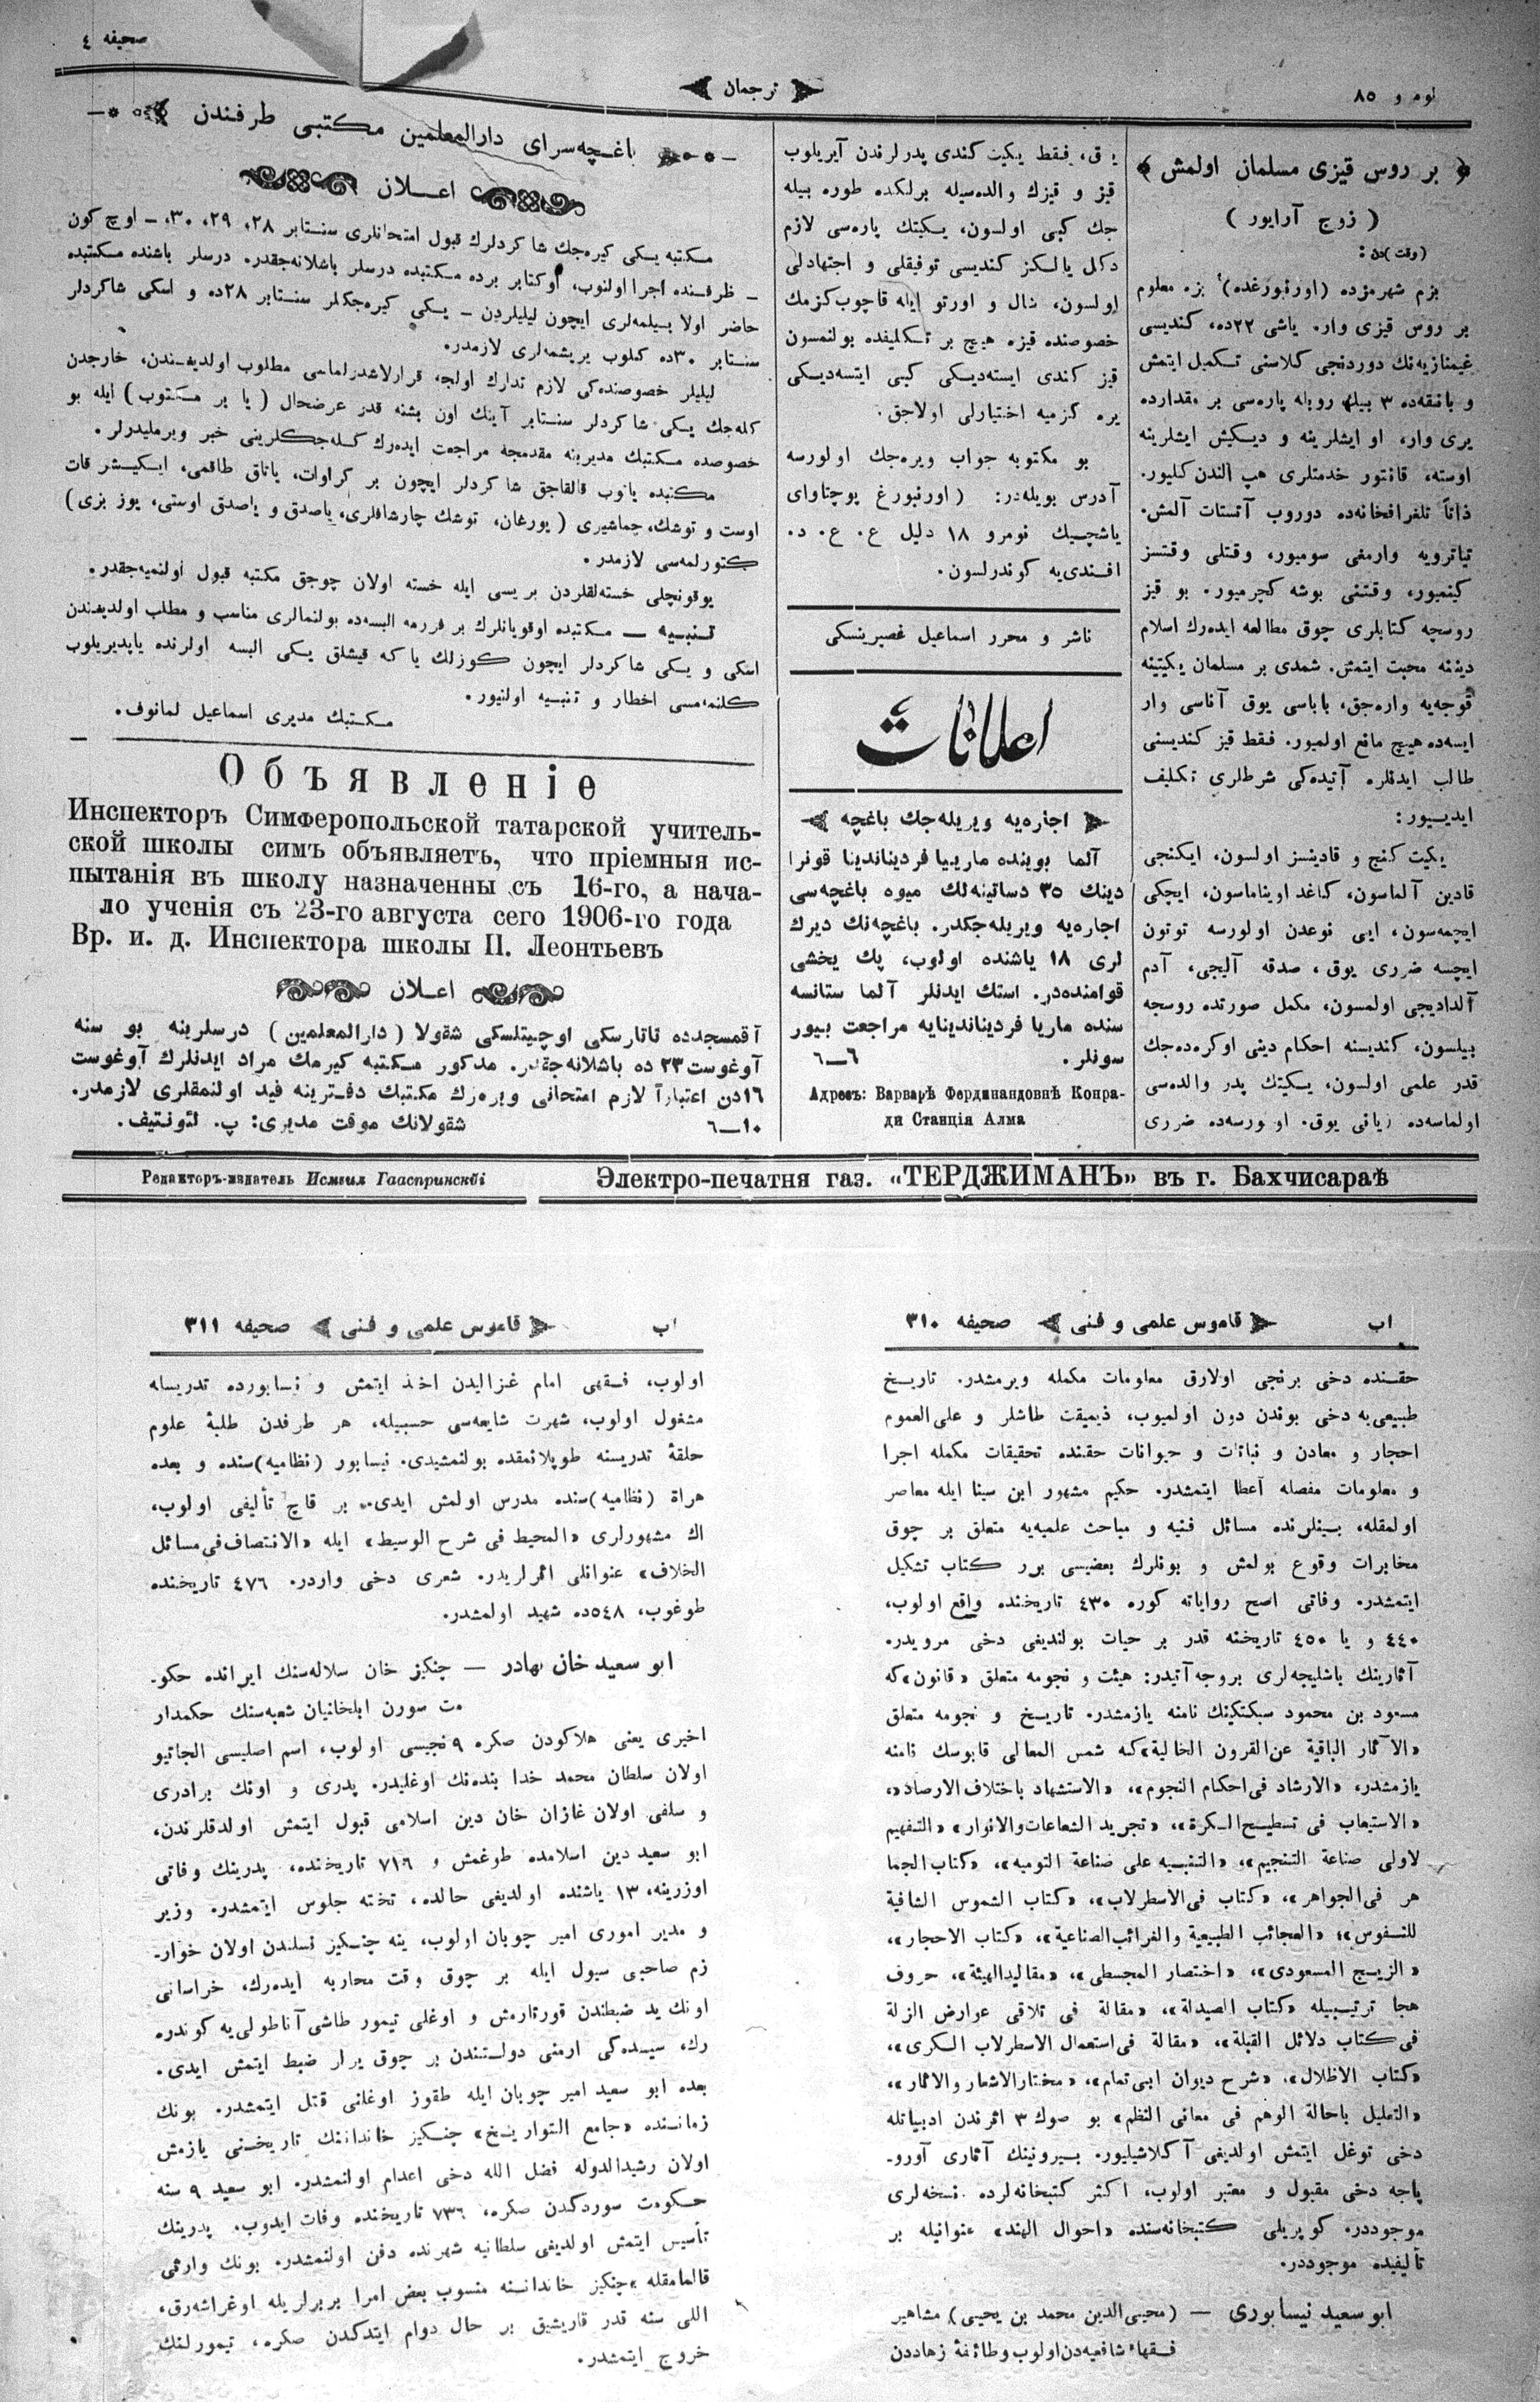 صحیفه ٤
ترجمان
نومرو ٨٥
﴿ بر روس قیزی مسلمان اولمش ﴾
( زوج آرایور )
(وقت)دن :
بزم شهرمزده (اورنبورغده) بزه معلوم
بر روس قیزی وار. یاشی ٢٢ده، کندیسی
غیمنازیه‌نك دوردنجی کلاسنی تکمیل ایتمش
و بانقه‌ده ٣ بیك روبله پاره‌سی بر مقدارده
یری وار، او ایشلرینه و دیکش ایشلرینه
اوسته، قانتور خدمتلری هپ الندن کلیور.
ذاتاً تلغرافخانه‌ده دوروب آتستات آلمش.
تیاترویه وارمغی سومیور، وقتلی وقتسز
کینمیور، وقتنی بوشه کچرمیور. بو قیز
روسچه کتابلری چوق مطالعه ایده‌رك اسلام
دیننه محبت ایتمش. شمدی بر مسلمان یکیتینه
قوجه‌یه واره‌جق، باباسی یوق آناسی وار
ایسه‌ده هیچ مانع اولمیور. فقط قیز کندیسنی
طالب ایدنلره آتیده‌کی شرطلری تکلیف
ایدیسیور :
یکیت کنج و قادینسز اولسون، ایکنجی
قادین آلماسون، کاغد اویناماسون، ایچکی
ایچمه‌سون، ایی نوعدن اولورسه توتون
ایچسه ضرری یوق، صدقه آلیجی، آدم
آلدادیجی اولمسون، مکمل صورتده روسجه
بیلسون، کندیسنه احکام دینی اوکره‌ده‌جك
قدر علمی اولسون، یکیتك پدر والده‌سی
اولماسه‌ده زیانی یوق. اولورسه‌ده ضرری
یوق، فقط یکیت کندی پدرلرندن آیریلوب
قیز و قیزك والده‌سیله برلکده طوره بیله
جك کبی اولسون، یکیتك پاره‌سی لازم
دکل یالکز کندیسی توفیقلی و اجتهادلی
اولسون، شال و اورتو ایله قاچوب کزمك
خصوصنده قیزه هیچ بر تکلیفده بولنمسون
قیز کندی ایسته‌دیکی کبی ایتسه‌دیکی
یره کزمیه اختیارلی اولاجق.
بو مکتوبه جواب ویره‌جك اولورسه
آدرس بویله‌در: (اورنبورغ پوچتاوای
یاشچیك نومرو ١٨ دلیل ع. ع. د.
افندی‌یه کوندرلسون.
ناشر و محرر اسماعیل غصپرینسکی
اعلانات
اجاره‌یه ویریله‌جك باغچه
آلما بوینده ماریبا فردیناندینا قونرا
دینك ٣٥ دساتینه‌لك میوه باغچه‌سی
اجاره‌یه ویریله‌جکدر. باغچه‌نك دیرك
لری ١٨ یاشنده اولوب، پك یخشی
قوامنده‌در. استك ایدنلر آلما ستانسه
سنده ماریا فردیناندینایه مراجعت بیور
سونلر. ٦—٦
Адресъ: Варварѣ Фердинандовнѣ Конра-
ди Станція Алма
باغچه‌سرای دارالمعلمین مکتبی طرفندن
اعلان
مکتبه یکی کیره‌جك شاکردلرك قبول امتحانلری سنتابر ٢٨، ٢٩، ٣٠، – اوچ کون
– ظرفنده اجرا اولنوب، اوکتابر برده مکتبده درسلر باشلانه‌جقدر. درسلر باشنده مکتبده
حاضر اولا بیلمه‌لری ایچون لیلیلردن – یکی کیره‌جکلر سنتابر ٢٨ده و اسکی شاکردلر
سنتابر ٣٠ده کلوب یریشمه‌لری لازمدر.
لیلیلر خصوصنده‌کی لازم تدارك اولجه قرارلاشدرلماسی مطلوب اولدیغندن، خارجدن
کله‌جك یکی شاکردلر سنتابر آینك اون بشنه قدر عرضحال ( یا بر مکتوب ) ایله بو
خصوصده مکتبك مدیرینه مقدمجه مراجعت ایده‌رك کله‌جکلرینی خبر ویرملیدرلر.
مکتبده یاتوب قالقاجق شاکردلر ایچون بر کراوات، یاتاق طاقمی، ایکیشر قات
اوست و توشك، چماشیری ( یورغان، توشك چارشافلری، یاصدق و یاصدق اوستی، یوز بزی )
کتورلمه‌سی لازمدر.
یوقونچلی خسته‌لقلردن بریسی ایله خسته اولان چوجق مکتبه قبول اولنمیه‌جقدر.
تنبیه — مکتبده اوقویانلرك بر فررمه البسه‌ده بولنمالری مناسب و مطلب اولدیغندن
اسکی و یکی شاکردلر ایچون کوزلك یا که قیشلق یکی البسه اولرنده یاپدیریلوب
کلنمه‌سی اخطار و تنبیه اولنیور.
مکتبك مدیری اسماعیل لمانوف.
Объявленіе
Инспекторъ Симферопольской татарской учитель-
ской школы симъ объявляетъ, что пріемныя ис-
пытанія въ школу назначенны съ 16-го, а нача-
ло ученія съ 23-го августа сего 1906-го года
Вр. и. д. Инспектора школы П. Леонтьевъ
اعلان
آقمسجدده تاتارسکی اوچیتلسکی شقولا (دارالمعلمین) درسلرینه بو سنه
آوغوست ٢٣ ده باشلانه‌جقدر. مذکور مکتبه کیرمك مراد ایدنلرك آوغوست
١٦دن اعتباراً لازم امتحانی ویره‌رك مکتبك دفترینه قید اولنمقلری لازمدر.
شقولانك موقت مدیری: پ. لئونتیف. ١٠—٦
Редакторъ-издатель Исмаил Гаспринскій
Электро-печатня газ. «ТЕРДЖИМАНЪ» въ г. Бахчисараѣ
اب قاموس علمی و فنی صحیفه ٣١٠
حقنده دخی برنجی اولارق معلومات مکمله ویرمشدر. تاریخ
طبیعی‌یه دخی بوندن دون اولمیوب، ذیقیمت طاشلر و علی‌العموم
احجار و معادن و نباتات و حیوانات حقنده تحقیقات مکمله اجرا
و معلومات مفصله اعطا ایتمشدر. حکیم مشهور ابن سینا ایله معاصر
اولمقله، بینلرنده مسائل فنیه و مباحث علمیه‌یه متعلق بر چوق
مخابرات وقوع بولمش و بونلرك بعضیسی برر کتاب تشکیل
ایتمشدر. وفاتی اصح روایاته کوره ٤٣٠ تاریخنده واقع اولوب،
٤٤٠ و یا ٤٥٠ تاریخنه قدر بر حیات بولندیغی دخی مرویدر.
آثارینك باشلیجه‌لری بروجه آتیدر: هیئت و نجومه متعلق «قانون»که
مسعود بن محمود سبکتکینك نامنه یازمشدر. تاریخ و نجومه متعلق
«الآثار الباقیة عن‌القرون الخالیة»که شمس المعالی قابوسك نامنه
یازمشدر، «الارشاد فی‌احکام النجوم»، «الاستشهاد باختلاف الارصاد»،
«الاستیعاب فی تسطیح‌الکرة»، «تجرید الشعاعات والانوار» «التفهیم
لاولی صناعة التنجیم»، «التنبیه علی صناعة التومیه»، «کتاب الجما
هر فی‌الجواهر»، «کتاب فی‌الاسطرلاب»، «کتاب الشموس الشافیة
للنفوس»، «العجائب الطبیعیة والغرائب‌الصناعیة»، «کتاب الاحجار»،
«الزیج المسعودی»، «اختصار المجسطی»، «مقالیدالهیئة»، حروف
هجا ترتیبیله «کتاب الصیدلة»، «مقالة فی تلاقی عوارض الزلة
فی‌کتاب دلائل القبلة»، «مقالة فی‌استعمال الاسطرلاب الکری»،
«کتاب الاظلال»، «شرح دیوان ابی‌تمام»، «مختارالاشعار والاثار»،
«التعلیل باحالة الوهم فی معانی النظم» بو صوك ٣ اثرندن ادبیاتله
دخی توغل ایتمش اولدیغی آکلاشیلیور. بیرونینك آثاری آورو-
پاجه دخی مقبول و معتبر اولوب، اکثر کتبخانه‌لرده نسخه‌لری
موجوددر. کوپریلی کتبخانه‌سنده «احوال الهند» عنوانیله بر
تألیفیده موجوددر.
ابو سعید نیسابوری — (محیی‌الدین محمد بن یحیی) مشاهیر
فقهاء شافعیه‌دن اولوب وطائفۀ زهاددن
اب قاموس علمی و فنی صحیفه ٣١١
اولوب، فقهی امام غزالیدن اخذ ایتمش و نیسابورده تدریسله
مشغول اولوب، شهرت شایعه‌سی حسبیله، هر طرفدن طلبۀ علوم
حلقۀ تدریسنه طوپلانمقده بولنمشیدی. نیسابور (نظامیه)سنده و بعده
هراة (نظامیه)سنده مدرس اولمش ایدی. بر قاچ تألیفی اولوب،
اك مشهورلری «المحیط فی شرح الوسیط» ایله «الانتصاف فی‌مسائل
الخلاف» عنوانلی اثرلریدر. شعری دخی واردر. ٤٧٦ تاریخنده
طوغوب، ٥٤٨ده شهید اولمشدر.
ابو سعید خان بهادر — چنکیز خان سلاله‌سنك ایرانده حکو-
مت سورن ایلخانیان شعبه‌سنك حکمدار
اخیری یعنی هلاکودن صکره ٩نجیسی اولوب، اسم اصلیسی الجایتو
اولان سلطان محمد خدا بنده‌نك اوغلیدر. پدری و اونك برادری
و سلفی اولان غازان خان دین اسلامی قبول ایتمش اولدقلرندن،
ابو سعید دین اسلامده طوغمش و ٧١٦ تاریخنده، پدرینك وفاتی
اوزرینه، ١٣ یاشنده اولدیغی حالده، تخته جلوس ایتمشدر. وزیر
و مدیر اموری امیر چوبان اولوب، ینه چنکیز نسلندن اولان خوار-
زم صاحبی سیول ایله بر چوق وقت محاربه ایده‌رك، خراسانی
اونك ید ضبطندن قورتارمش و اوغلی تیمور طاشی آناطولی‌یه کوندره
رك، سیده‌کی ارمنی دولتندن بر چوق یرلر ضبط ایتمش ایدی.
بعده ابو سعید امیر چوبان ایله طقوز اوغلنی قتل ایتمشدر. بونك
زمانسنده «جامع التواریخ» چنکیز خاندانینك تاریخنی یازمش
اولان رشیدالدوله فضل الله دخی اعدام اولنمشدر. ابو سعید ٩ سنه
حکومت سوردکدن صکره، ٧٣٦ تاریخنده وفات ایدوب، پدرینك
تأسیس ایتمش اولدیغی سلطانیه شهرنده دفن اولنمشدر. بونك وارثی
قالمامقله، چنکیز خاندانسنه منسوب بعض امرا بربرلریله اوغراشه‌رق،
اللی سنه قدر قاریشیق بر حال دوام ایتدکدن صکره، تیمورلنك
خروج ایتمشدر.